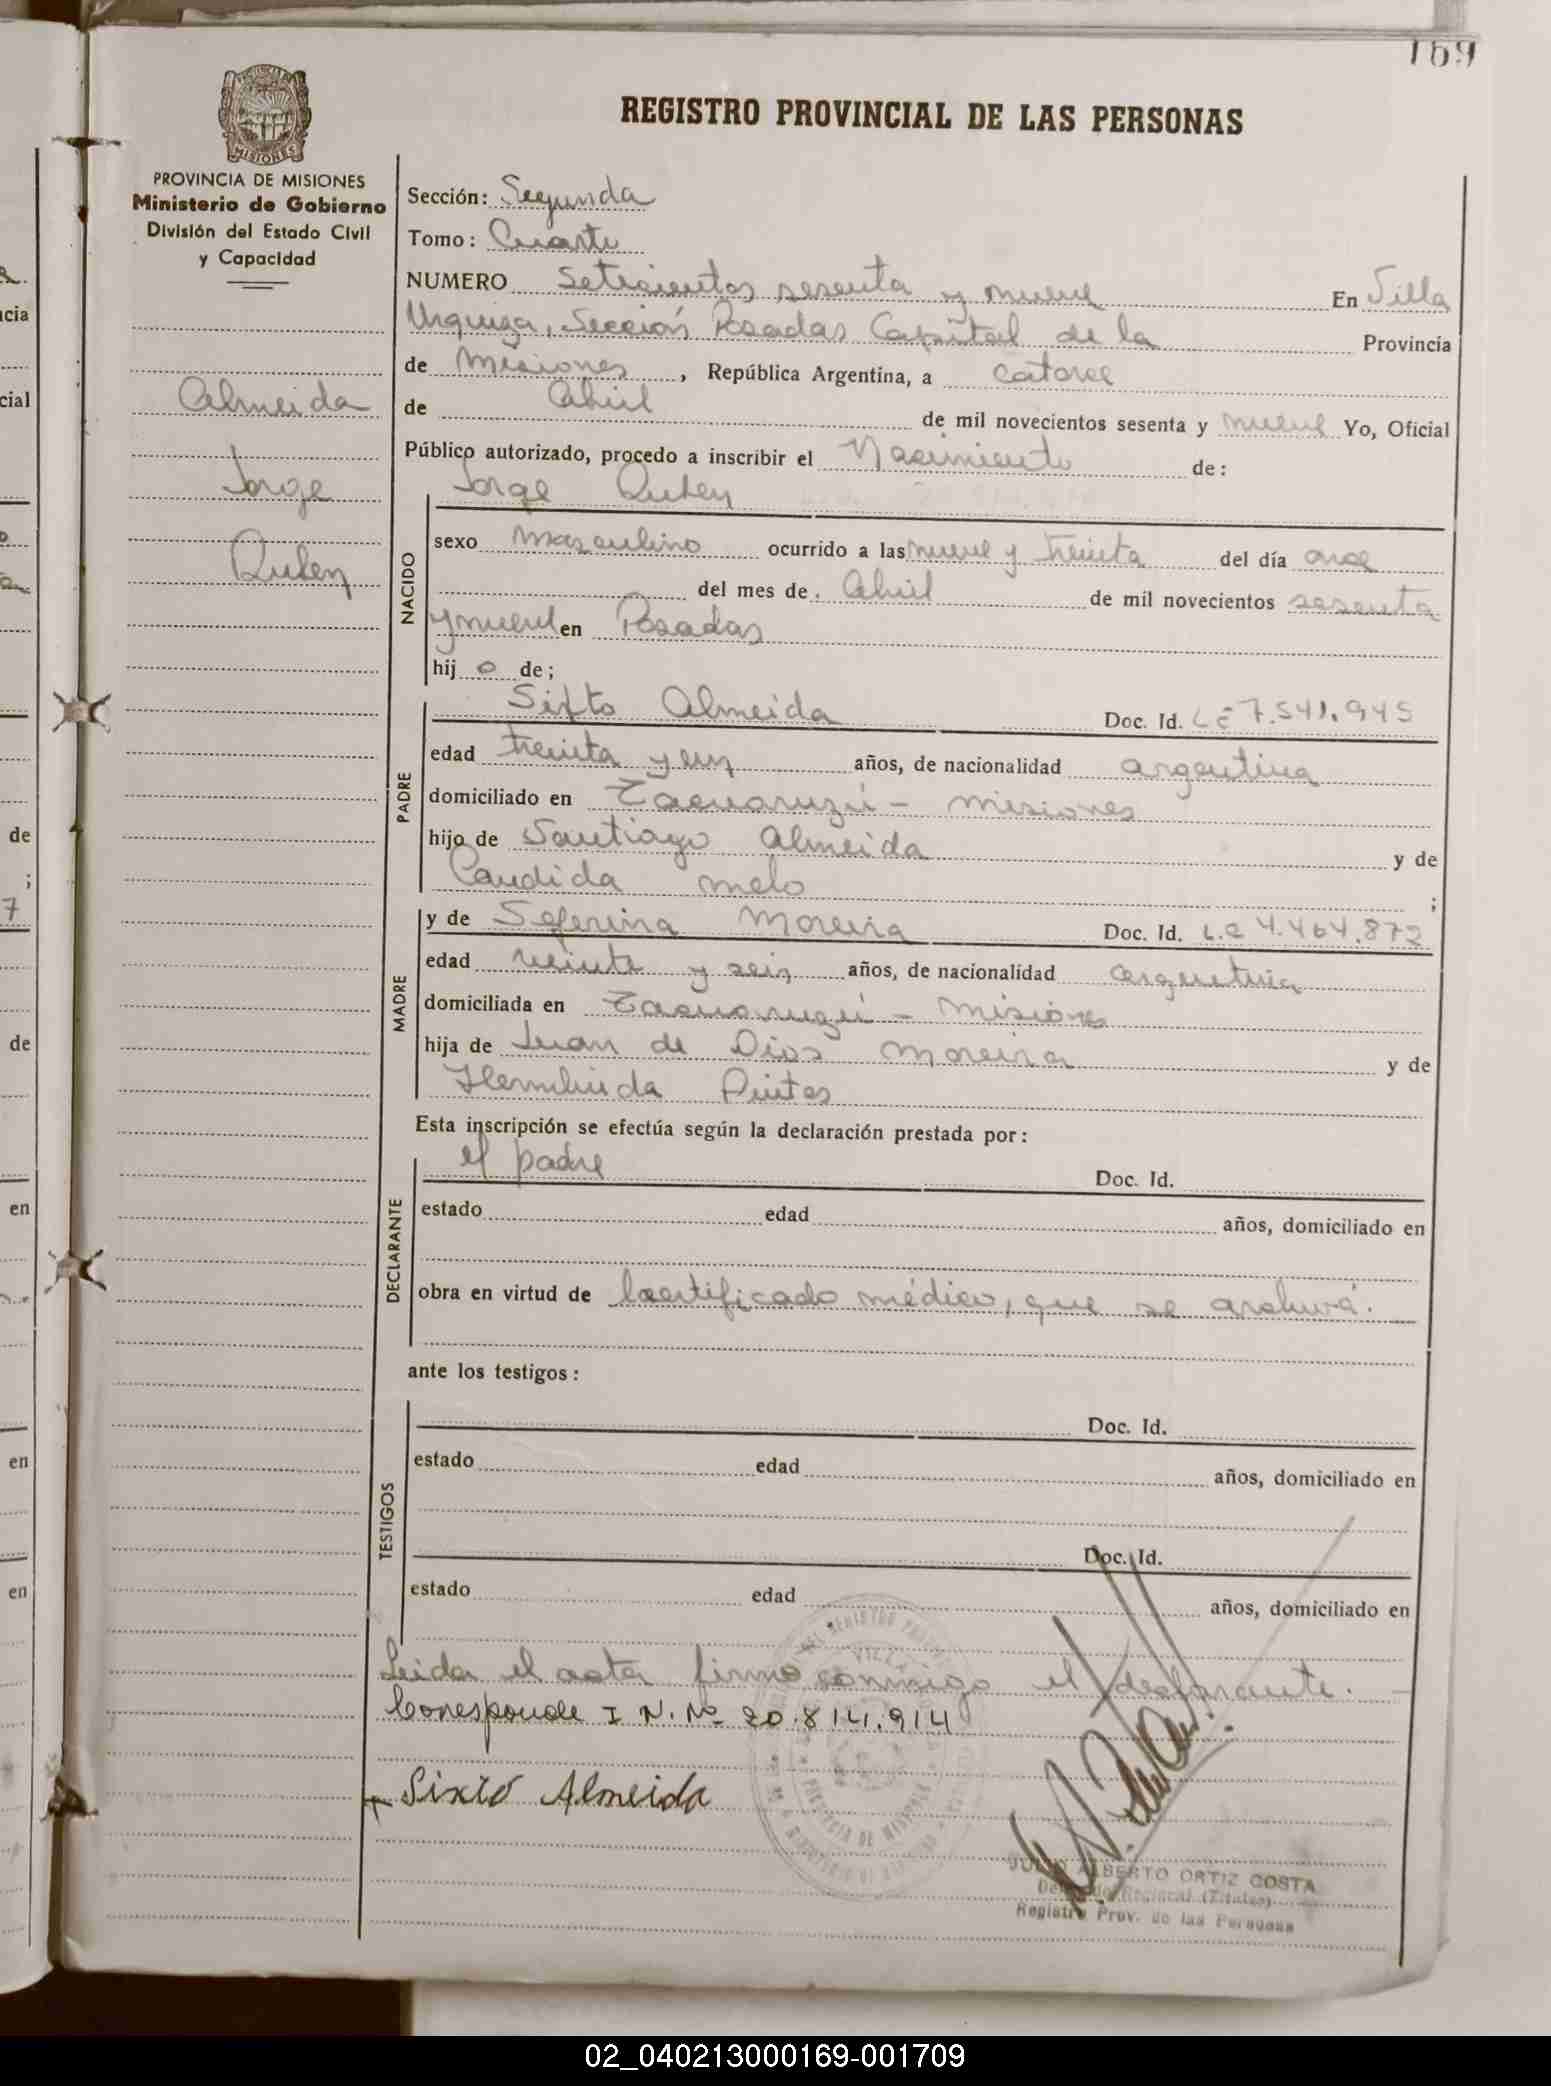 169
REGISTRO PROVINCIAL DE LAS PERSONAS
PROVINCIA DE MISIONES
Ministerio de Gobierno
División del Estado Civil
y Capacidad
Almeida
Jorge
Ruben
Sección: Segunda
Tomo: Cuarto
NUMERO Setecientos sesenta y nueve En Villa
Urquiza, Sección Posadas Capital de la Provincia
de Misiones, República Argentina, a catorce
de Abril de mil novecientos sesenta y nueve Yo, Oficial
Público autorizado, procedo a inscribir el Nacimiento de:
Jorge Ruben
NACIDO
sexo masculino ocurrido a las nueve y treinta del día once
del mes de Abril de mil novecientos sesenta
y nueve en Posadas
hijo de;
PADRE
Sixto Almeida Doc. Id. L E 7.541.945
edad treinta y un años, de nacionalidad argentina
domiciliado en Tacuaruzú - Misiones
hijo de Santiago Almeida y de
Candida Melo ;
MADRE
y de Seferina Moreira Doc. Id. L.C 4.464.872
edad veinte y seis años, de nacionalidad argentina
domiciliada en Tacuaruzú - Misiones
hija de Juan de Dios Moreira y de
Hermelinda Pintos
Esta inscripción se efectúa según la declaración prestada por:
DECLARANTE
el padre Doc. Id.
estado edad años, domiciliado en
obra en virtud de certificado médico, que se archiva.
ante los testigos:
TESTIGOS
Doc. Id.
estado edad años, domiciliado en
Doc. Id.
estado edad años, domiciliado en
Leida el acta firma conmigo el declarante.
Corresponde I N. Nº 20.814.914
Sixto Almeida
PROVINCIA DE MISIONES
JULIO ALBERTO ORTIZ COSTA
Delegado Regional (Titular)
Registro Prov. de las Personas
02_040213000169-001709